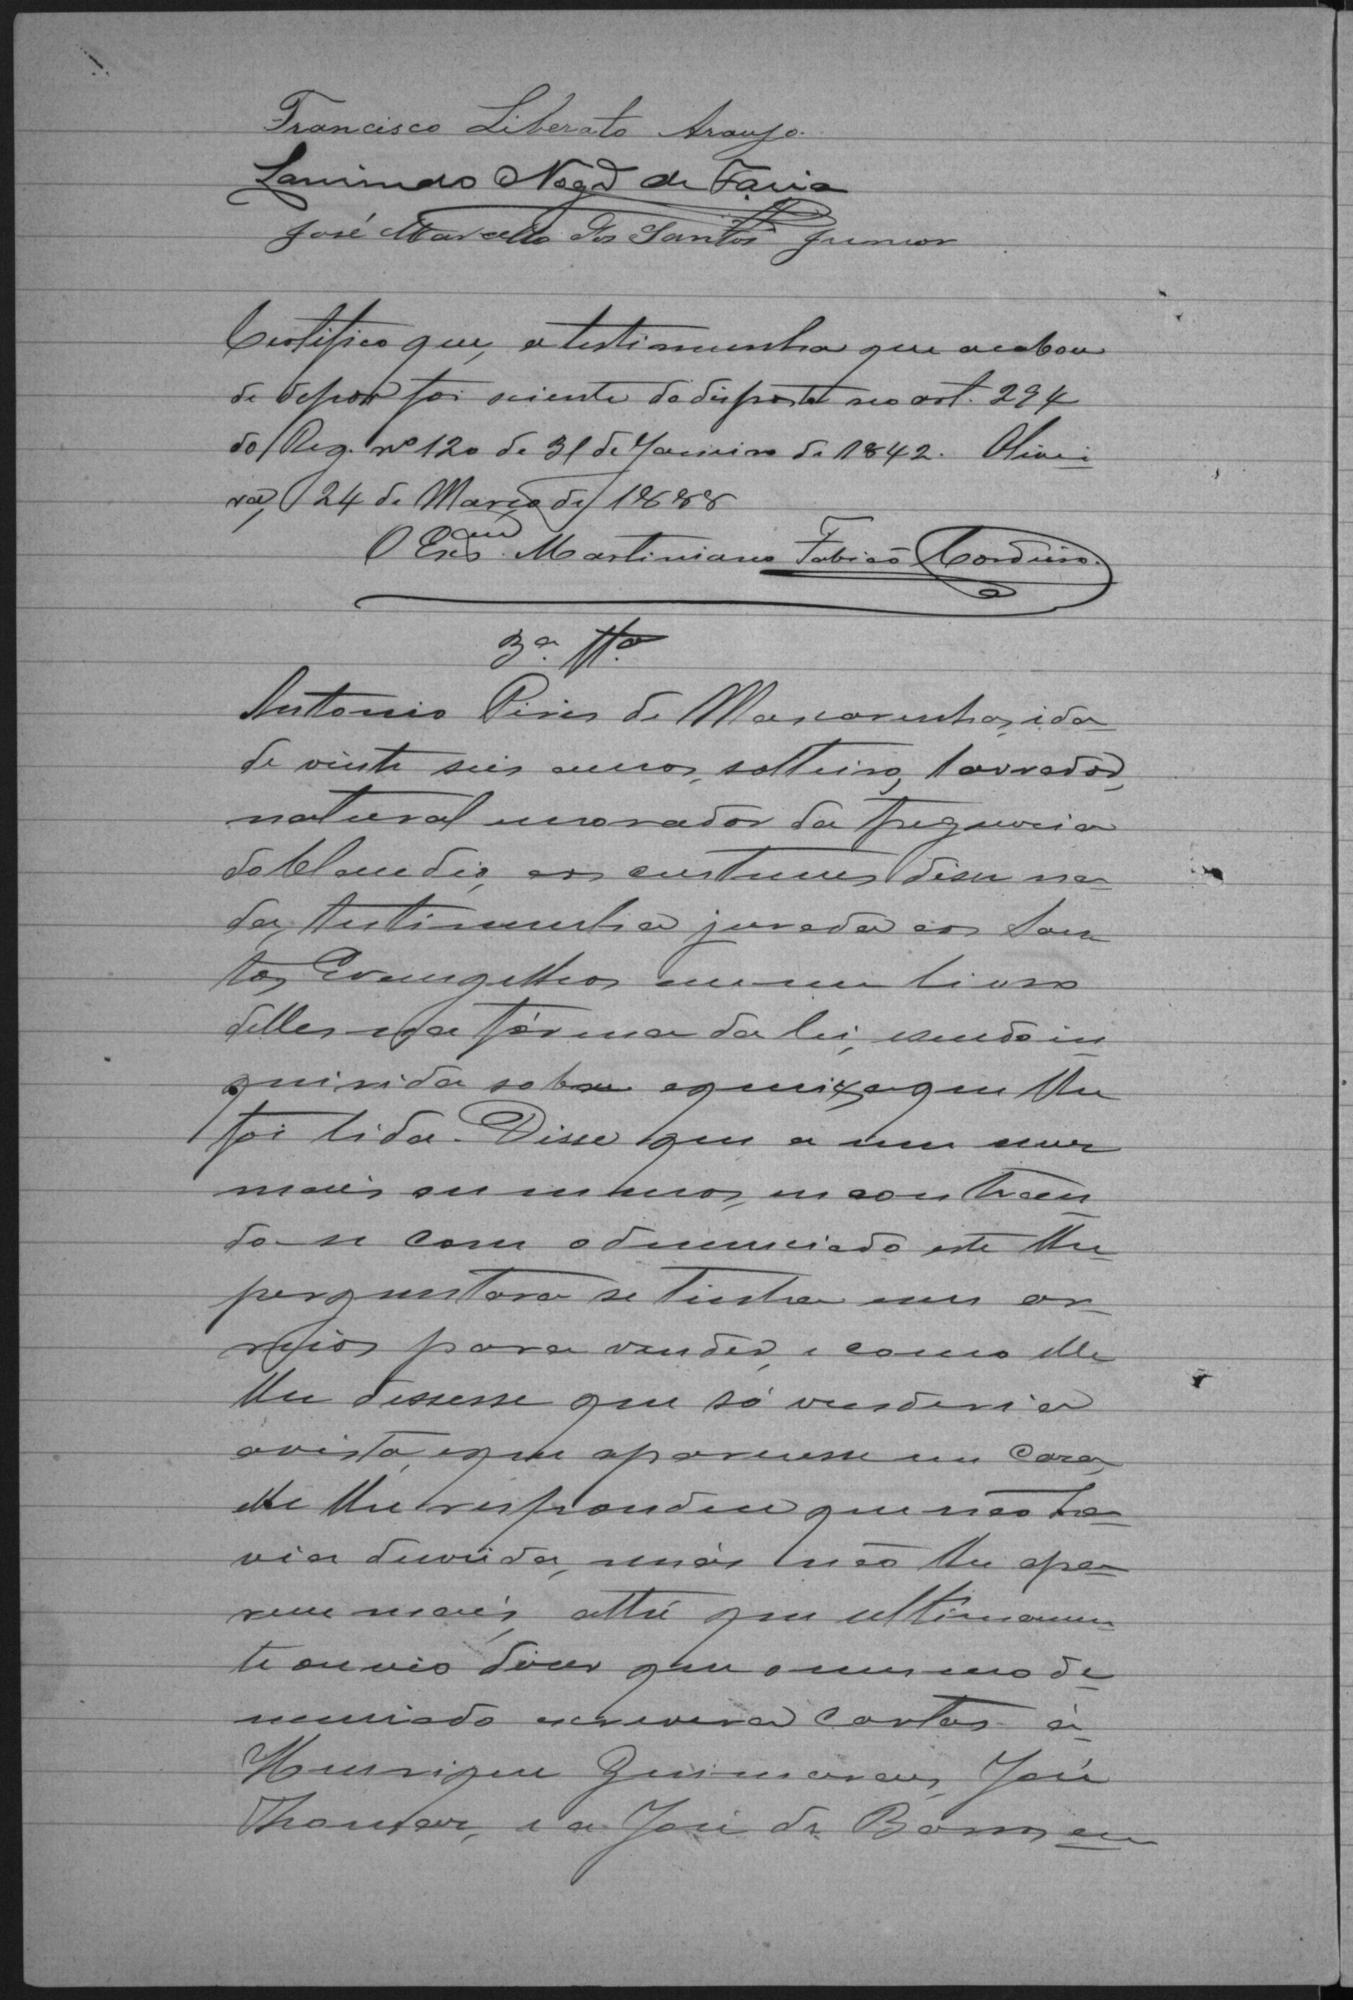 Francisco Liberato Araujo.
Laurindo Nogᵃ de Faria
José Marcello dos Santos Junior
Certifico que, a testimunha que acabou
de depor foi sciente do disposto no art. 294
do Reg. nº 120 de 31 de Janeiro de 1842. Olivei-
ra, 24 de Março de 1888
O Escᵃᵐ Martiniano Fabião Cordeiro.
3ª Ttª
Antonio Pires de Mascarenhas, ida-
de vinte seis annos, solteiro, lavrador,
natural morador da freguesia
do Claudio, aos custumes disse na-
da, testimunha jurada aos San-
tos Evangelhos em um livro
delles na fórma da lei, esendo in-
quirida sobre aqueixa que lhe
foi lida. Disse que a um mez
mais ou menos, encontran-
do-se com o denunciado este lhe
perguntara se tinha uns ar-
reios para vender, e como elle
lhe dissesse que só venderia
avista, eque aparecesse em casa,
elle lhe respondeu que não ha-
via duvida, más não lhe apa-
receu mais, athé que ultimamen-
te ouvio dizer que o mesmo de-
nunciado escrevera cartas á
Henrique Guimarães, José
Thomaz, e a José de Barros em